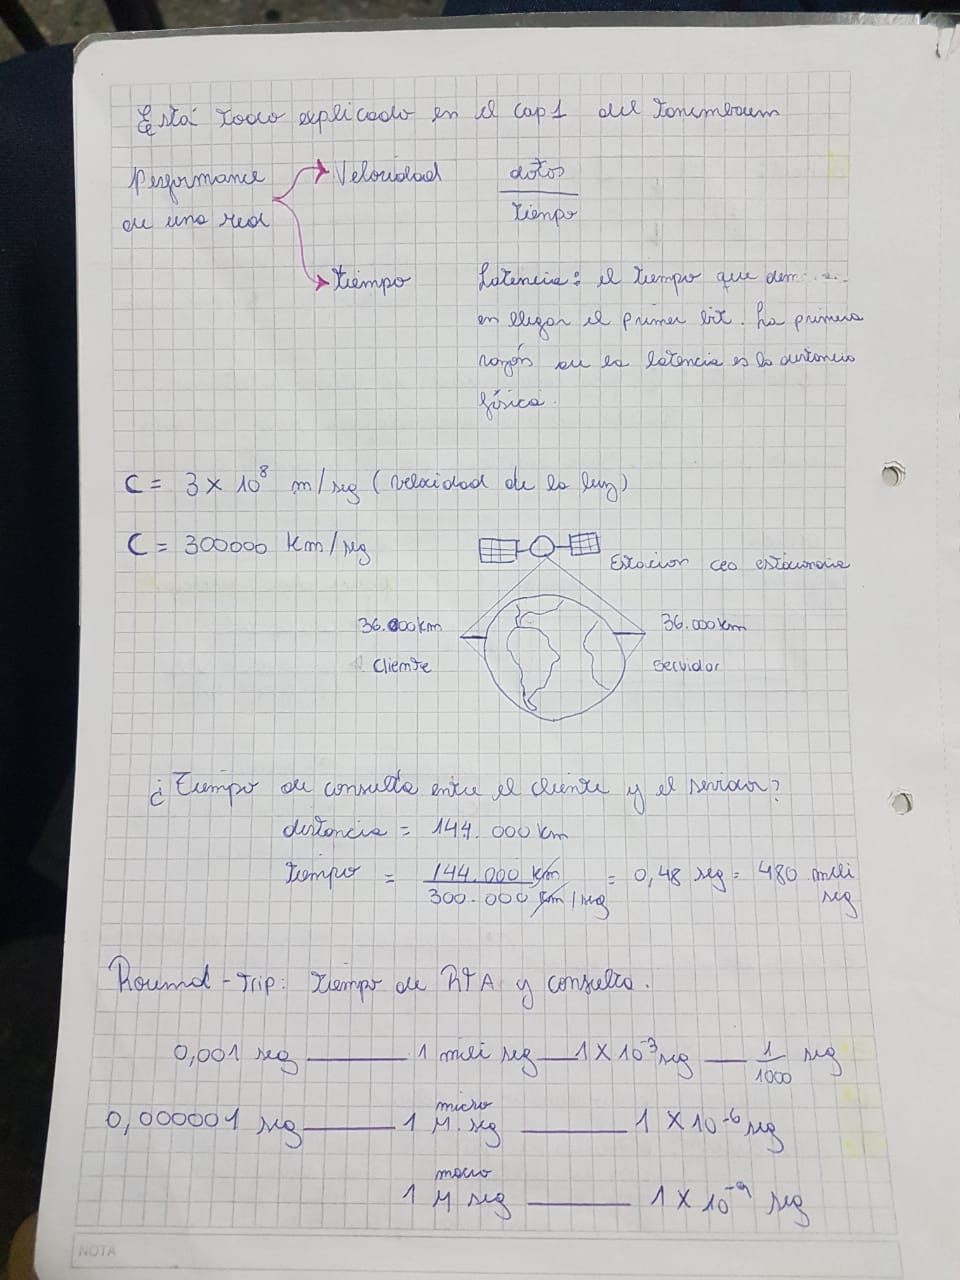 Está todo explicado en el cap 1 del Tanembaum
Performance de una red
Velocidad
datos
tiempo
tiempo
Latencia: el tiempo que
en llegar el primer bit. La primera
razón de la latencia es la distancia
física.
C = 3 × 10⁸ m/seg (velocidad de la luz)
C = 300000 Km/seg
Estacion ceo estacionaria
36.000km
36.000km
Cliente
Servidor
¿Tiempo de consulta entre el cliente y el servidor?
distancia = 144.000 km
tiempo = 144.000 km / 300.000 km/seg = 0,48 seg = 480 mili seg
Round-Trip: tiempo de RTA y consulta.
0,001 seg — 1 mili seg — 1 × 10⁻³ seg — 1/1000 seg
micro
0,000001 seg — 1 M. seg — 1 × 10⁻⁶ seg
1 M seg — 1 × 10⁻⁹ seg
NOTA